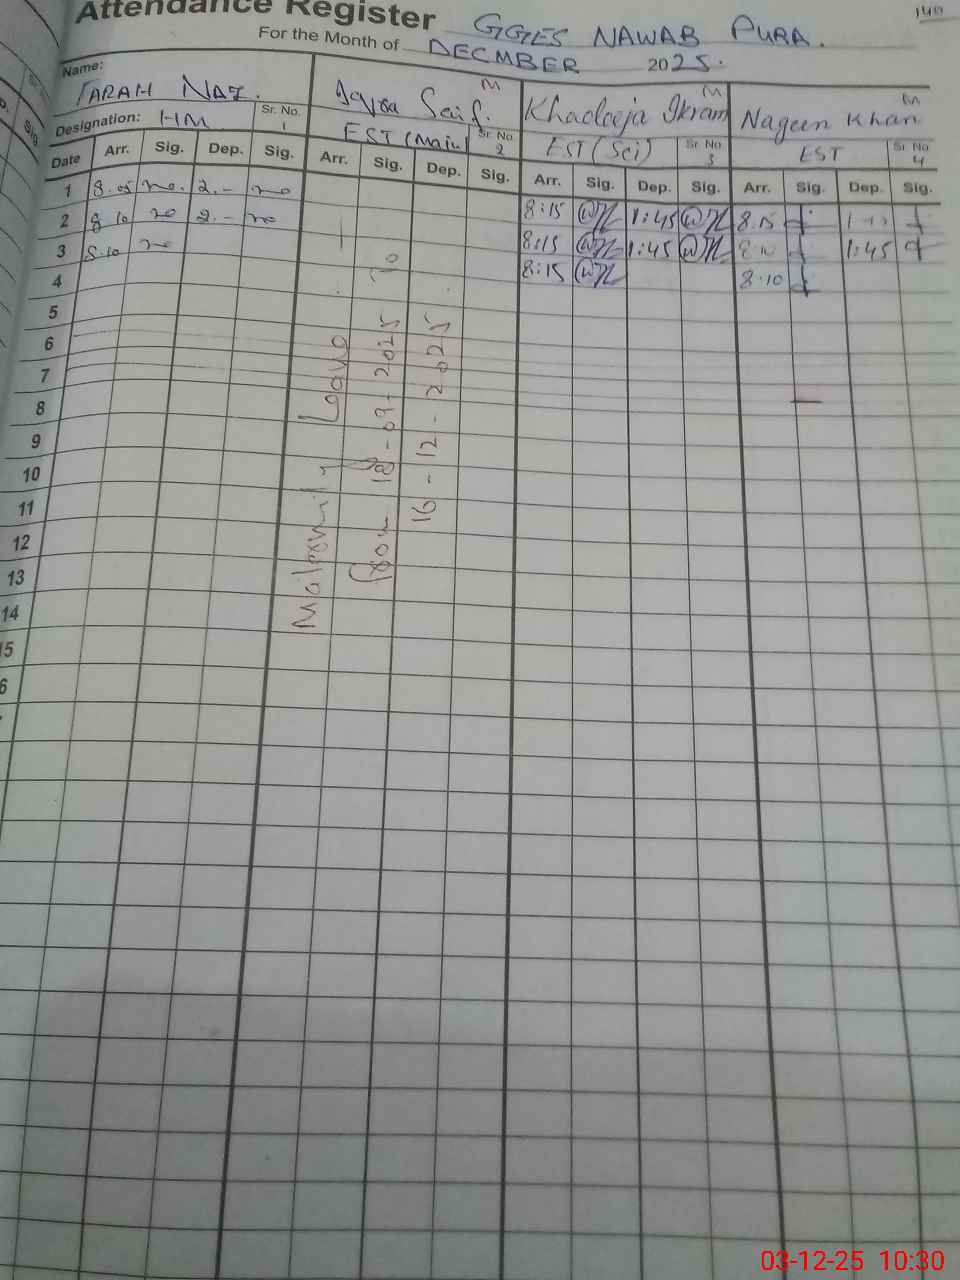 140
Attendance Register GGES NAWAB PURA.
For the Month of DECMBER 2025.
Name:
FARAH NAZ. Saif. M Khadeeja Ikram M Nageen Khan M
Designation: HM Sr. No. 1 EST (Main) Sr. No. 2 EST (Sci) Sr. No 3 EST Sr. No 4
Date Arr. Sig. Dep. Sig. Arr. Sig. Dep. Sig. Arr. Sig. Dep. Sig. Arr. Sig. Dep. Sig.
1 8.05 2.- 8:15 1:45 8.15
2 8.10 2.- 8:15 1:45 8.10 1:45
3 8.10 8:15 8.10
4
5
6
7
8
9
10
11
12
13
14
15
Maternity Leave
From 18-09-2025 To
16-12-2025
03-12-25 10:30